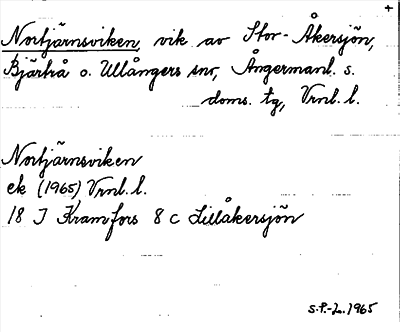 +
Nortjärnsviken, vik av Stor-Åkersjön,
Bjärtrå o. Ullångers snr, Ångermanl. s.
doms. tg, Vrnl. l.
Nortjärnsviken
ek (1965) Vrnl. l.
18 J Kramfors 8 c Lillåkersjön
S.P.-L. 1965